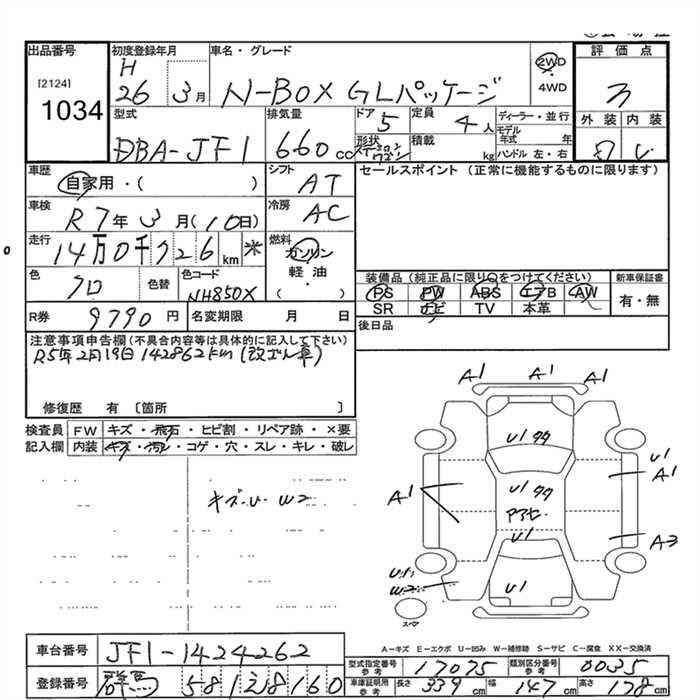 出品番号
[2124]
1034
初度登録年月
H
26 3月
車名・グレード
N-BOX GLパッケージ
2WD
4WD
評価点
3
外装 内装
型式
DBA-JF1
排気量
660cc
ドア
5
定員
4人
形状
ステーションワゴン
積載
kg
ディーラー・並行
モデル年式 年
ハンドル 左・右
車歴
自家用・( )
シフト
AT
セールスポイント (正常に機能するものに限ります)
車検
R7年3月(10日)
冷房
AC
走行
14万0千726km *
燃料
ガソリン
軽油
( )
色
クロ
色替
色コード
NH850X
装備品 (純正品に限り○をつけてください)
PS PW ABS エアB AW
SR ナビ TV 本革
新車保証書
有・無
R券
9790円
名変期限 月 日
後日品
注意事項申告欄(不具合内容等は具体的に記入して下さい)
R5年2月19日 142862km (改ざん車)
修復歴 有 〔箇所 〕
検査員
記入欄
FW キズ・飛石・ヒビ割・リペア跡・×要
内装 キズ・汚レ・コゲ・穴・スレ・キレ・破レ
キズ・U W2
A1 A1 A1
U1
U1
A1
A1
U1
アンテナ
U1
A3
U1
W2
U1
スペア
A-キズ E-エクボ U-凹み W-補修跡 S-サビ C-腐食 XX-交換済
車台番号
JF1-1424262
登録番号
群馬 581 2 8160
型式指定番号
参考
17075
類別区分番号
参考
0035
車庫証明用
参考
長さ 339cm 幅 147cm 高さ 178cm